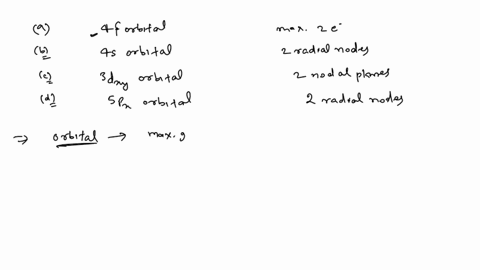 (a) 4f orbital max. 2 e⁻
(b) 4s orbital 2 radial nodes
(c) 3dxy orbital 2 nodal planes
(d) 5Px orbital 2 radial nodes
⇒ orbital → max. 9